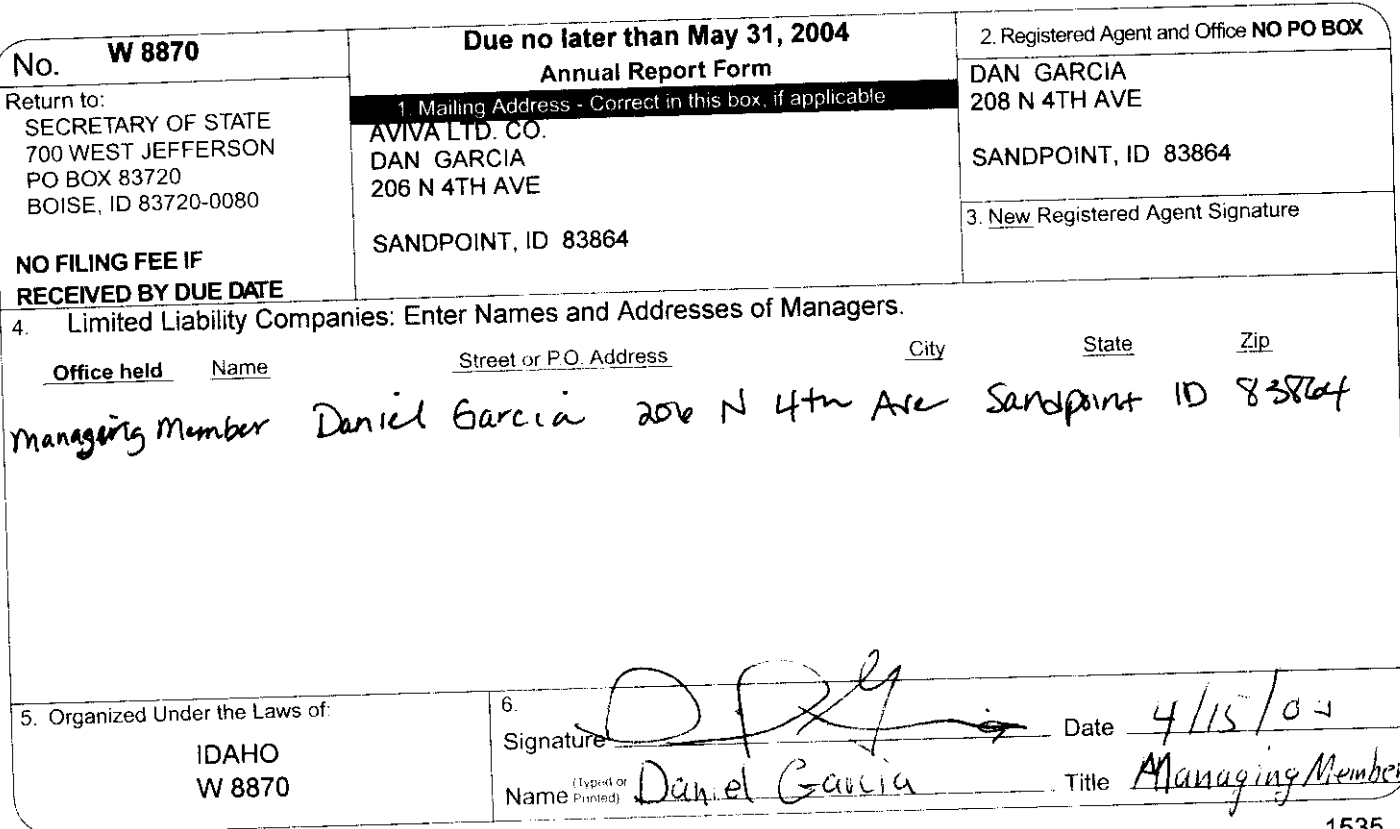 No. W 8870
Return to:
SECRETARY OF STATE
700 WEST JEFFERSON
PO BOX 83720
BOISE, ID 83720-0080
NO FILING FEE IF
RECEIVED BY DUE DATE
Due no later than May 31, 2004
Annual Report Form
1. Mailing Address - Correct in this box, if applicable
AVIVA LTD. CO.
DAN GARCIA
206 N 4TH AVE
SANDPOINT, ID 83864
2. Registered Agent and Office NO PO BOX
DAN GARCIA
208 N 4TH AVE
SANDPOINT, ID 83864
3. New Registered Agent Signature
4. Limited Liability Companies: Enter Names and Addresses of Managers.
Office held Name Street or P.O. Address City State Zip
Managing Member Daniel Garcia 206 N 4th Ave Sandpoint ID 83864
5. Organized Under the Laws of:
IDAHO
W 8870
6.
Signature Date 4/15/04
Name (Typed or Printed) Daniel Garcia Title Managing Member
1535